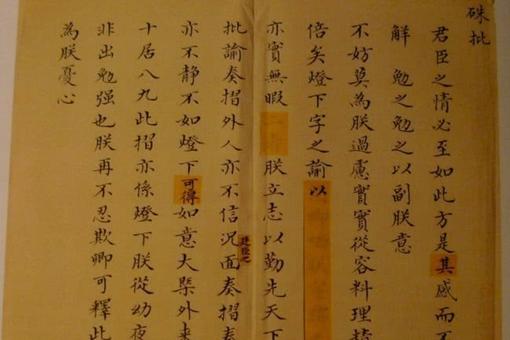 硃批
君臣之情必至如此方是其感而不
解 勉之勉之以副朕意
不妨莫為朕過慮實實從容料理
倍矣燈下字之諭以
亦實無暇 朕立志以勤先天下
批諭奏摺外人亦不信況面奏摺
亦不靜不如燈下可得如意大槩外来
十居八九此摺亦係燈下朕從幼夜
非出勉强也朕再不忍欺卿可釋此
為朕憂心